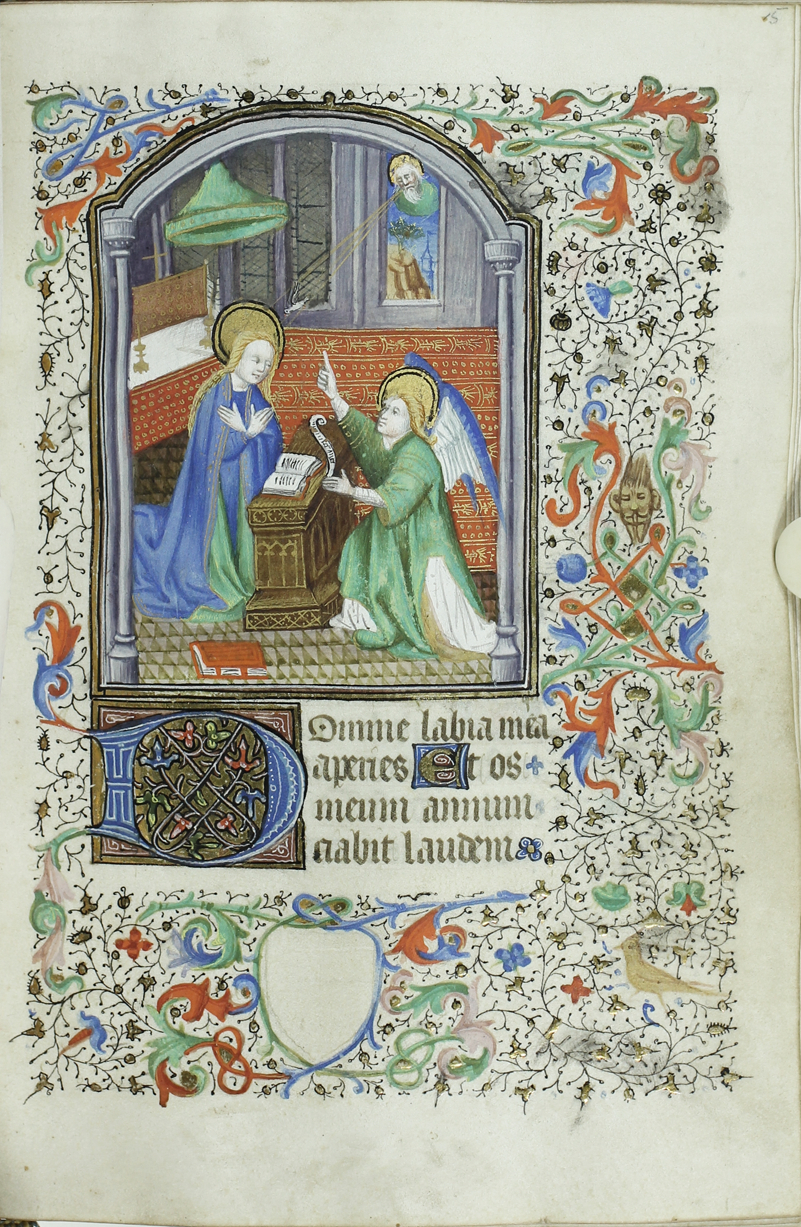 15
Domine labia mea
aperies Et os
meum annun
ciabit laudem